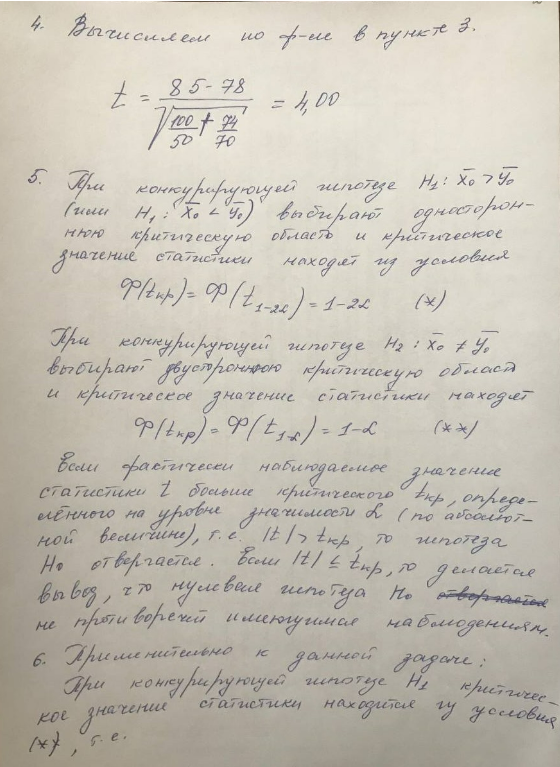 4. Вычисляем по ф-ле в пункте 3.
t = (85-78) / √(100/50 + 74/70) = 4,00
5. При конкурирующей гипотезе H₁: x̄₀ > ȳ₀
(или H₁: x̄₀ < ȳ₀) выбирают односторон-
нюю критическую область и критическое
значение статистики находят из условия
Ф(tкр) = Ф(t₁₋₂α) = 1-2α (*)
При конкурирующей гипотезе H₂: x̄₀ ≠ ȳ₀
выбирают двустороннюю критическую область
и критическое значение статистики находят
Ф(tкр) = Ф(t₁₋α) = 1-α (**)
Если фактически наблюдаемое значение
статистики t больше критического tкр, опреде-
лённого на уровне значимости α (по абсолют-
ной величине), т.е. |t| > tкр, то гипотеза
H₀ отвергается. Если |t| ≤ tкр, то делается
вывод, что нулевая гипотеза H₀ отвергается
не противоречит имеющимся наблюдениям.
6. Применительно к данной задаче:
При конкурирующей гипотезе H₁ критичес-
кое значение статистики находится из условия
(*), т.е.